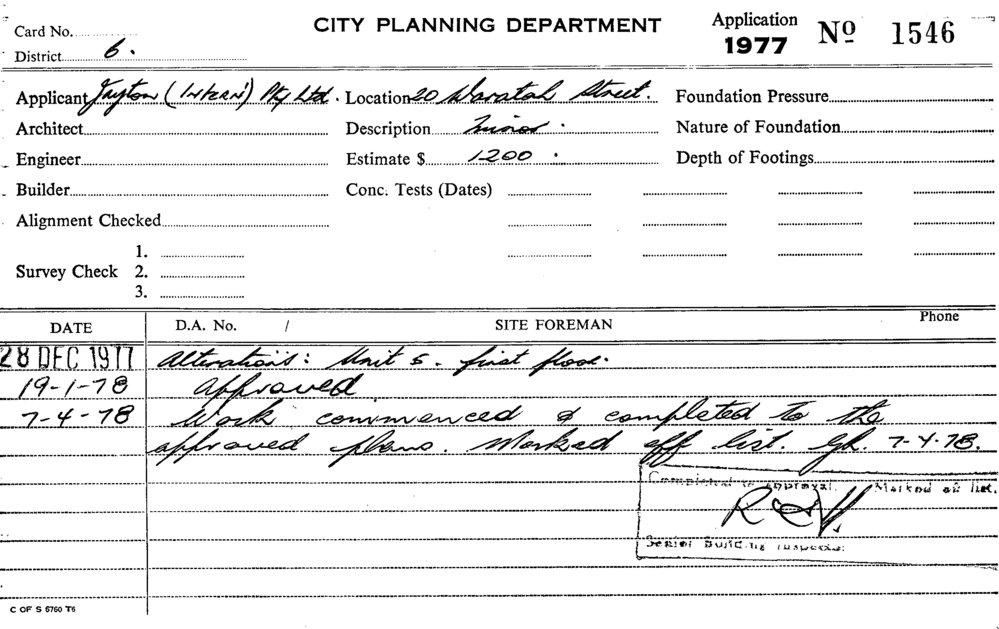 CITY PLANNING DEPARTMENT
Application
1977
Nº 1546
Card No.
District 6.
Applicant Jayton (Intern) Pty Ltd. Location 20 Waratah Street. Foundation Pressure
Architect Description Minor. Nature of Foundation
Engineer Estimate $ 1200. Depth of Footings
Builder Conc. Tests (Dates)
Alignment Checked
Survey Check
1.
2.
3.
DATE D.A. No. / SITE FOREMAN Phone
28 DEC 1977 Alterations: Unit 5. first floor.
19-1-78 Approved
7-4-78 Work commenced & completed to the
approved plans. Marked off list. 7-4-78.
Completed to approval. Marked off list.
Senior Building Inspector
C OF S 5760 T6